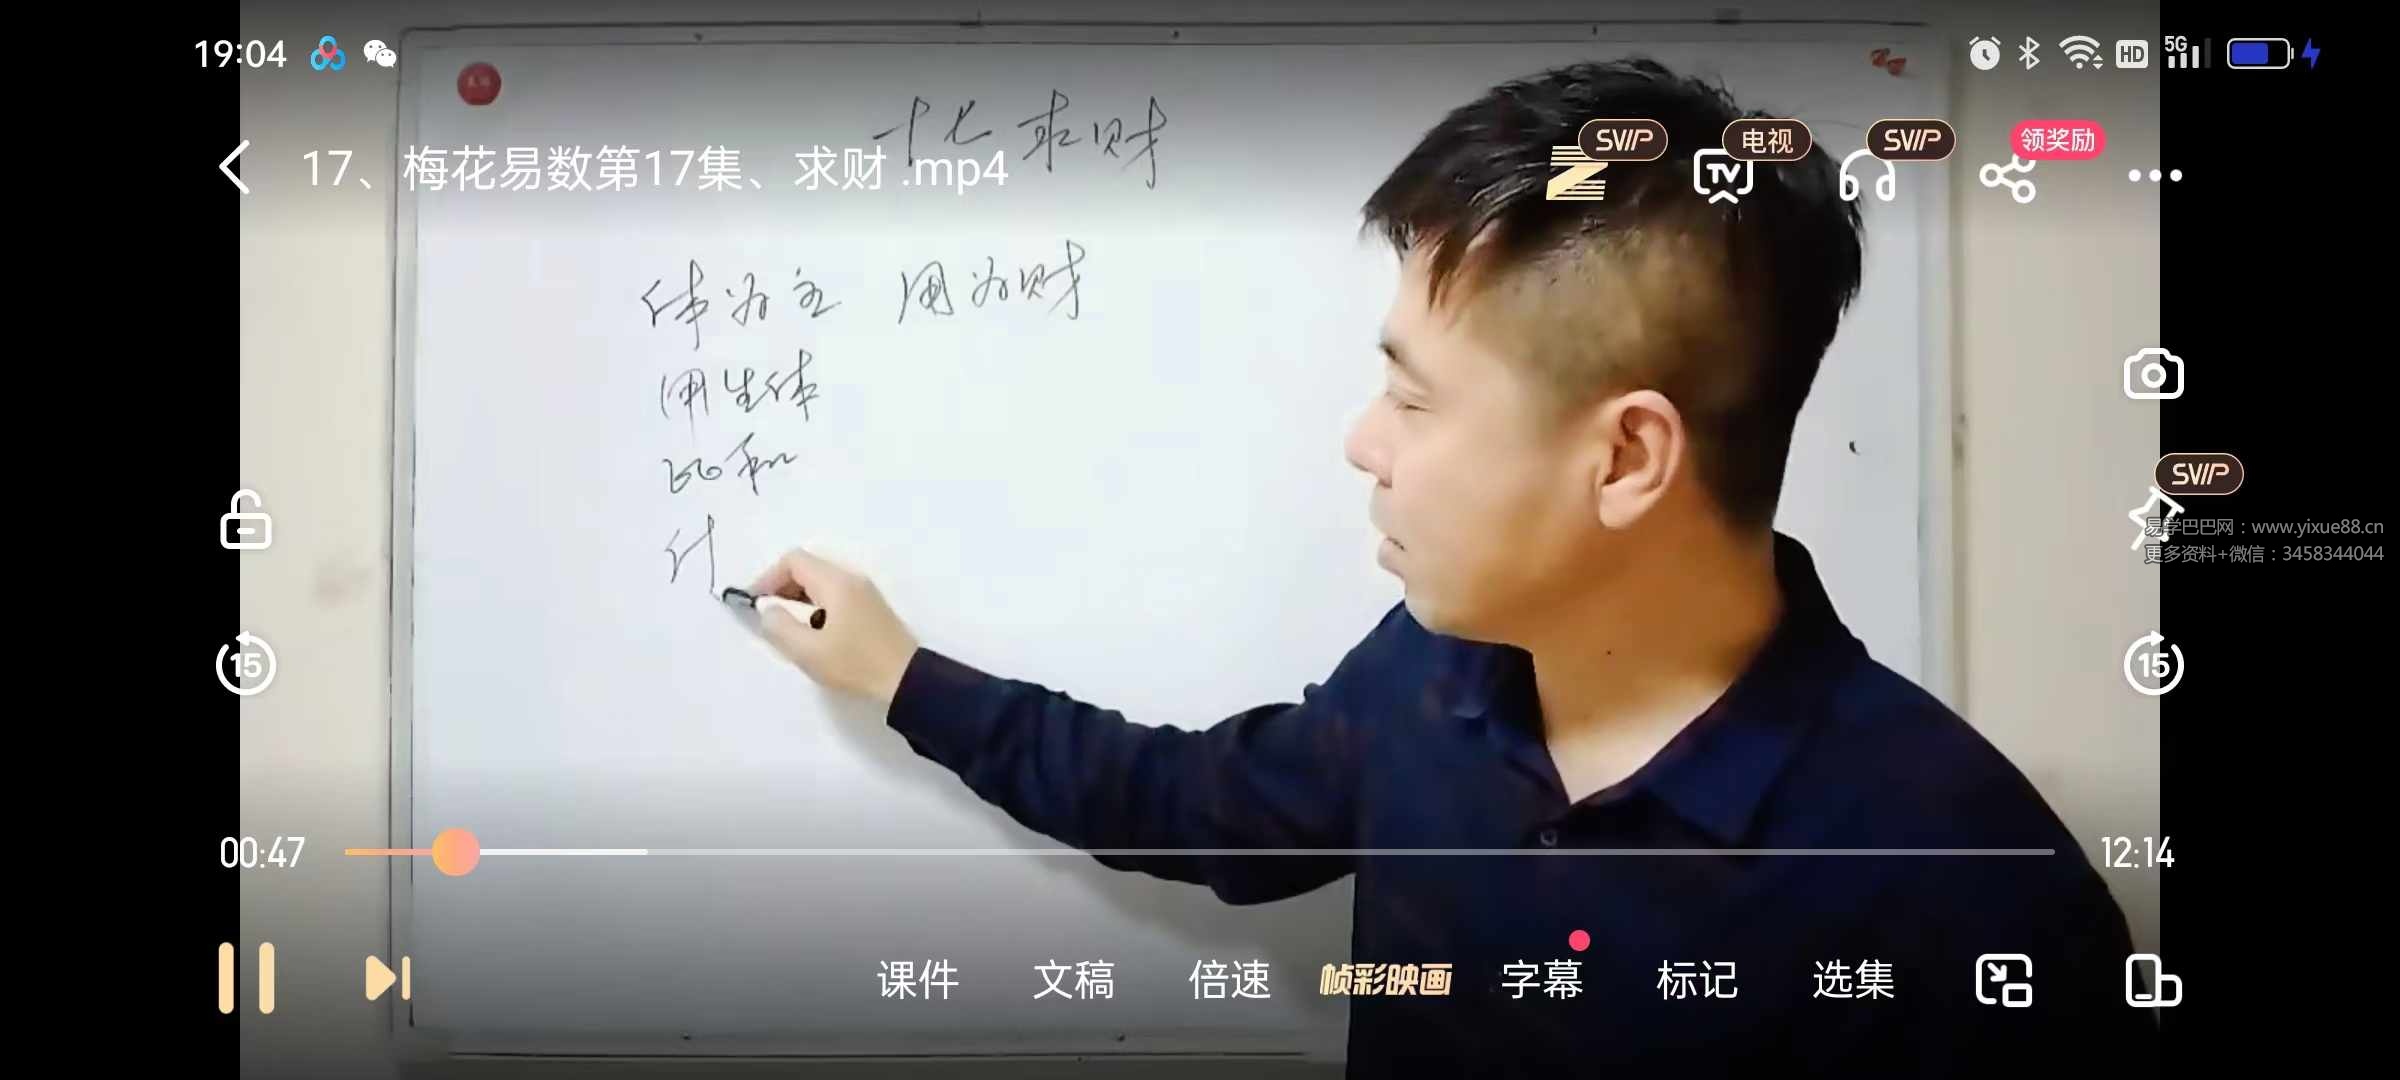 19:04
HD
5G
十七 求财
SVIP
电视
SVIP
领奖励
17、梅花易数第17集、求财 .mp4
TV
体为主 用为财
用生体
比和
SVIP
易学巴巴网：www.yixue88.cn
更多资料+微信：3458344044
15
15
00:47
12:14
课件
文稿
倍速
帧彩映画
字幕
标记
选集